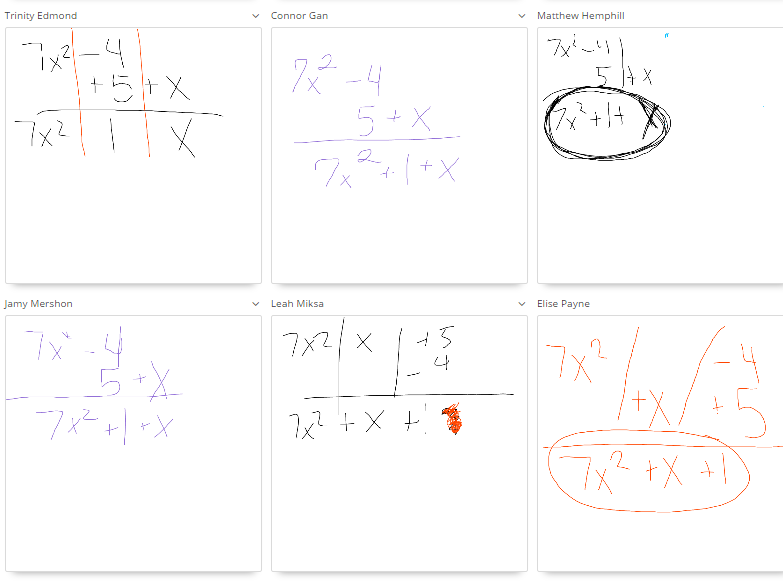 Trinity Edmond
7x² - 4
+ 5 + x
7x² 1 x
Connor Gan
7x² - 4
5 + x
7x² + 1 + x
Matthew Hemphill
7x² - 4
5 + x
7x² + 1 + x
Jamy Mershon
7x - 4
5 + x
7x² + 1 + x
Leah Miksa
7x² x + 5
- 4
7x² + x + 1
Elise Payne
7x² - 4
+ x + 5
7x² + x + 1